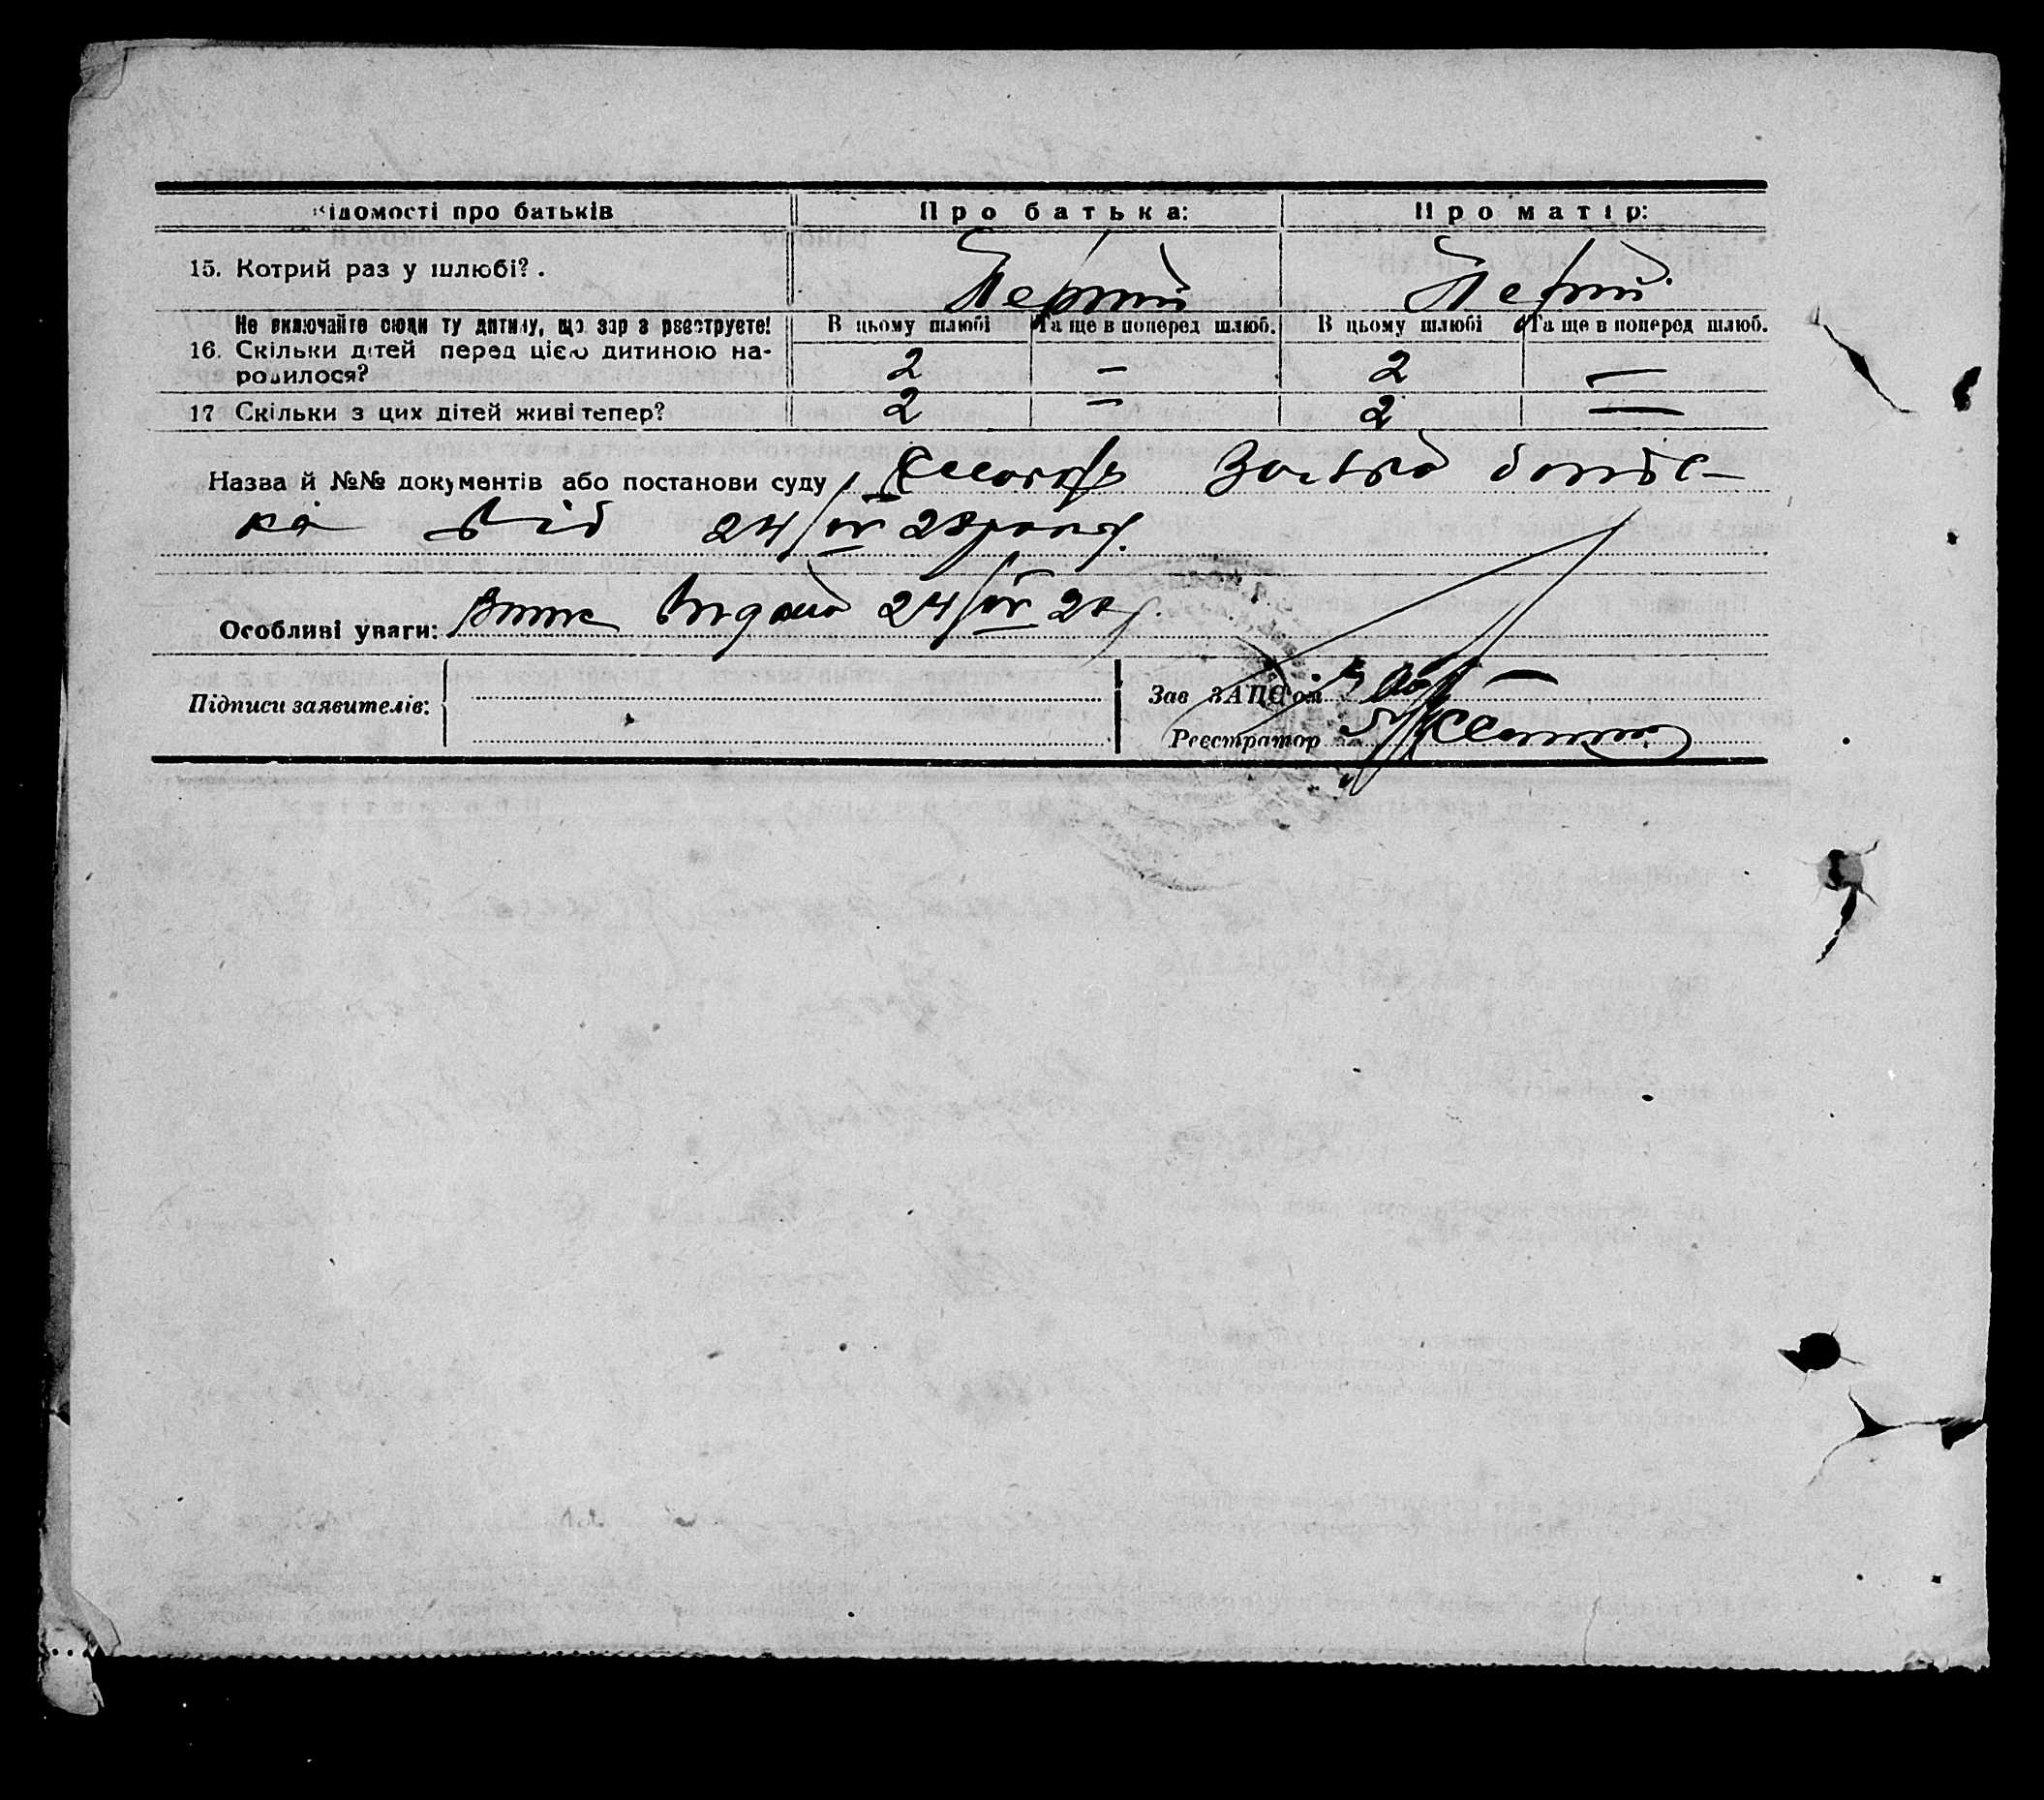 Відомості про батьків Про батька: Про матір:
15. Котрий раз у шлюбі? . Первий Первий
Не включайте сюди ту дитину, що зараз реєструєте! В цьому шлюбі Та ще в поперед шлюб. В цьому шлюбі Та ще в поперед шлюб.
16. Скільки дітей перед цією дитиною на-
родилося? 2 — 2 —
17 Скільки з цих дітей живі тепер? 2 — 2 —
Назва й №№ документів або постанови суду Заява батьк-
ка від 24/IV 28 року.
Особливі уваги: Витяг видано 24/IV 28 р.
Підписи заявителів: Зав ЗАПСом
Реєстратор